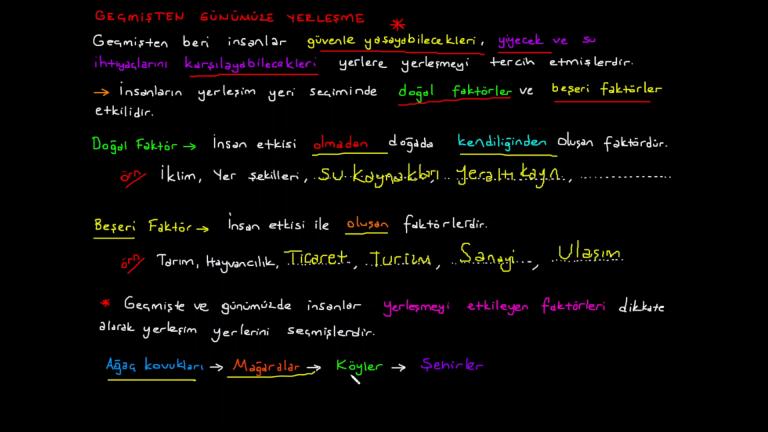 GEÇMİŞTEN GÜNÜMÜZE YERLEŞME *
Geçmişten beri insanlar güvenle yaşayabilecekleri, yiyecek ve su
ihtiyaçlarını karşılayabilecekleri yerlere yerleşmeyi tercih etmişlerdir.
→ İnsanların yerleşim yeri seçiminde doğal faktörler ve beşeri faktörler
etkilidir.
Doğal Faktör → İnsan etkisi olmadan doğada kendiliğinden oluşan faktördür.
örn İklim, Yer şekilleri, su kaynakları, yeraltı kayn, ..................
Beşeri Faktör → İnsan etkisi ile oluşan faktörlerdir.
örn Tarım, Hayvancılık, Ticaret, Turizm, Sanayi, Ulaşım
* Geçmişte ve günümüzde insanlar yerleşmeyi etkileyen faktörleri dikkate
alarak yerleşim yerlerini seçmişlerdir.
Ağaç kovukları → Mağaralar → Köyler → Şehirler